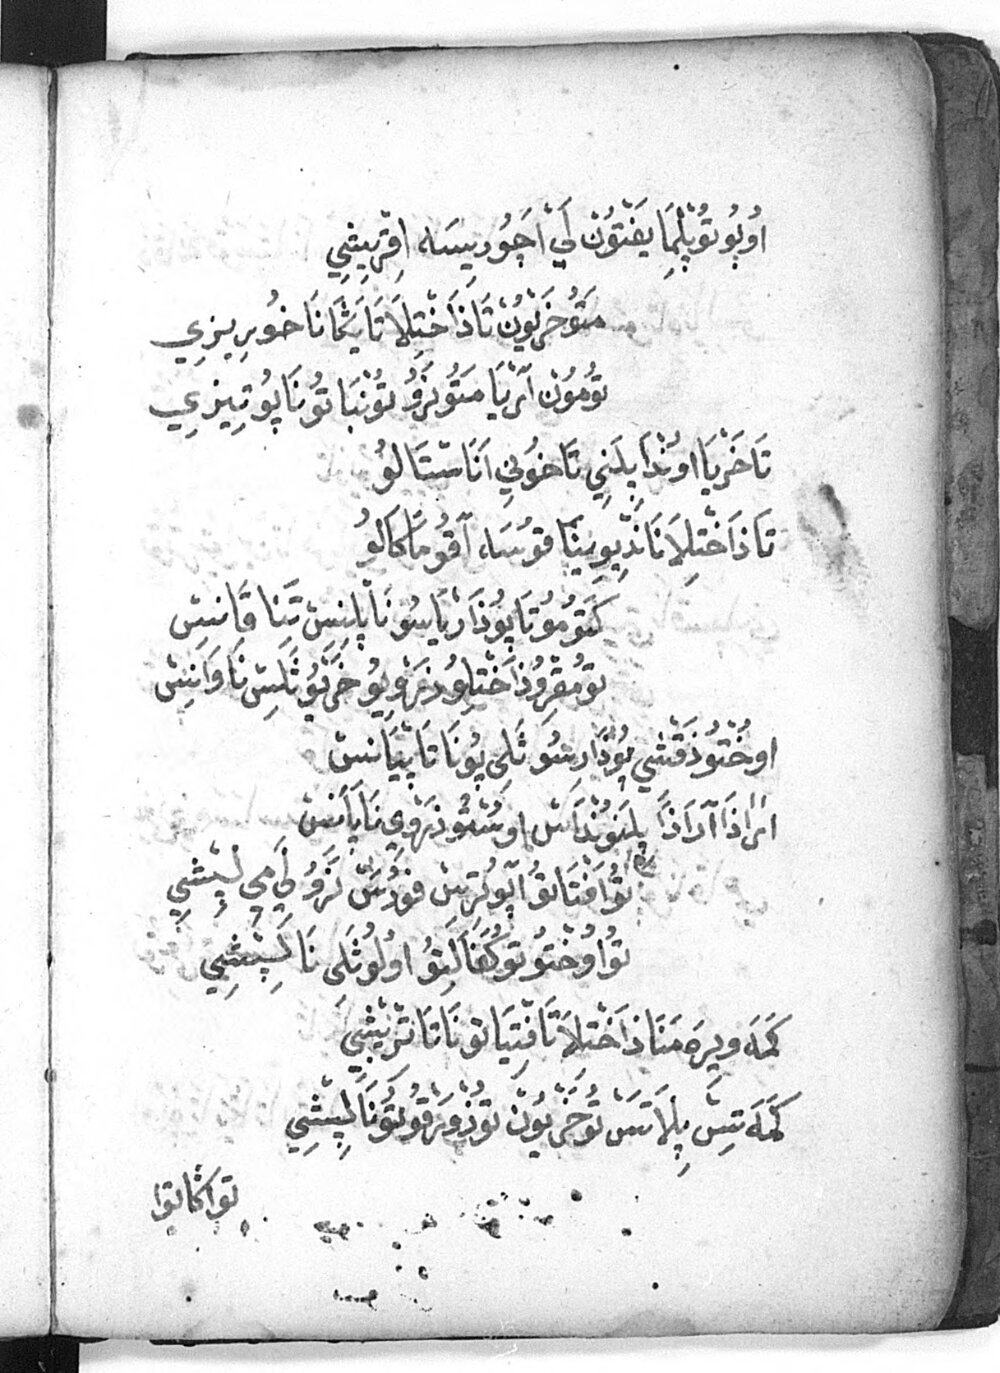 اُوپُو تُوپْلِمَا يَفْتُوْنْ لَيْ اَچَوُرِيسَه اِقْرِيشِي
مَتُوخَرْيُونْ تَاذَاخْتِلَا تَا يَخَّانَا خُورِيزِي
تُومُونْ اَرْيَا مَتُونَرَوُ تُونْبَا تُونَاپُوتِيزِي
تَاخَرْيَا اوُنْذَا پِلَنِي تَاخُونِي اَنَاسْتَالُو
تَاذَاخْتِلَا نَاذِيوِينَا قوُسَاء اَقُومَاكَالُو
كَتُومُوتَاپُوذَارْيَاسُو نَاپْلِنِسْ تَنَا قَانِسْ
تُومُقْرُوذَاخْتِلُو ذَرْوِيُو خَرْيُو ثَلِسْ نَاوَانِسْ
اوُخْتُوذَقْسِّي پُوذَارسُو ثَلِي پُونَا تَاپِيَانسْ
اَرَاذَا اَرَاذَا پلَنوُنْذَاسْ اوُسُتُوذَرْوِي نَايَانِسْ
تُوَافْتَاتوُ اَپُوكُرِسْ فوُذُسْ نَرَوُ لَيْ مِي لِپِشِي
تُو اوُخْتُوتُو كُفَالِتُو اوُلُو ثَلِي نَالِپِشِّي
كَمَه وِيرَه مَنَاذَاخْتِلَا تَافْتِيَاتوُ نَاتَا تْرِيشِّي
كَمَه تِسْ پِلَاتَسْ تُوخَرْيُونْ تُوزْوَرْقُوتُونَا لِپِشِّي
تواكاتوا